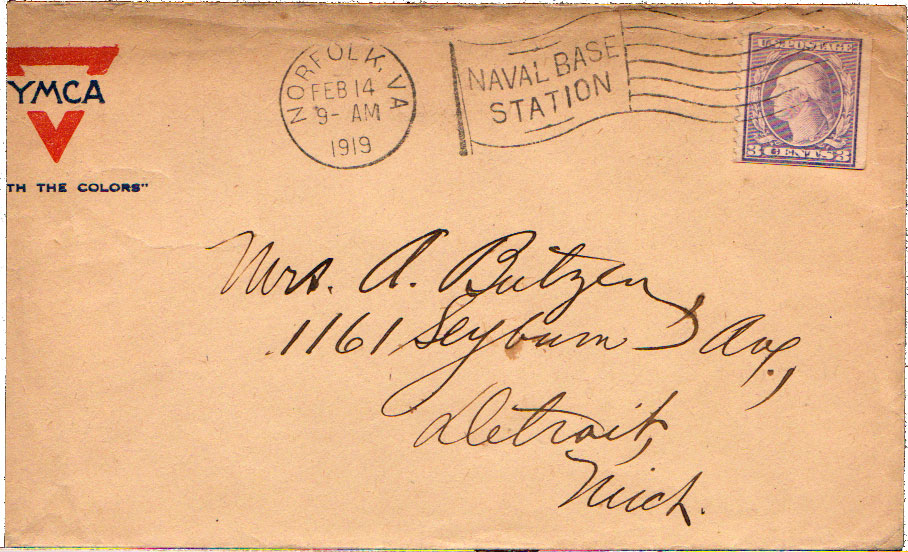 YMCA
TH THE COLORS"
NORFOLK, VA
FEB 14
9- AM
1919
NAVAL BASE
STATION
U.S. POSTAGE
3 CENTS 3
Mrs. A. Butzen,
1161 Seyburn Ave,
Detroit,
Mich.